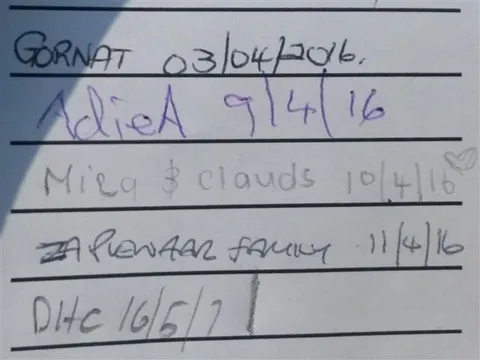 GORNAT 03/04/2016.
AdieA 9/4/16
Miza & Clauds 10/4/16
FAMILY 11/4/16
DHC 16/5/7